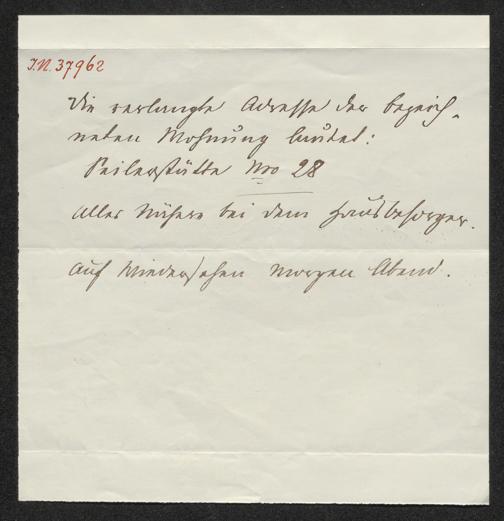 I.N. 37962
Die verlangte Adresse der bezeich-
neten Wohnung lautet:
Seilerstätte Nro 28
Alles Nähere bei dem Hausbesorger.
Auf Wiedersehen morgen Abend.